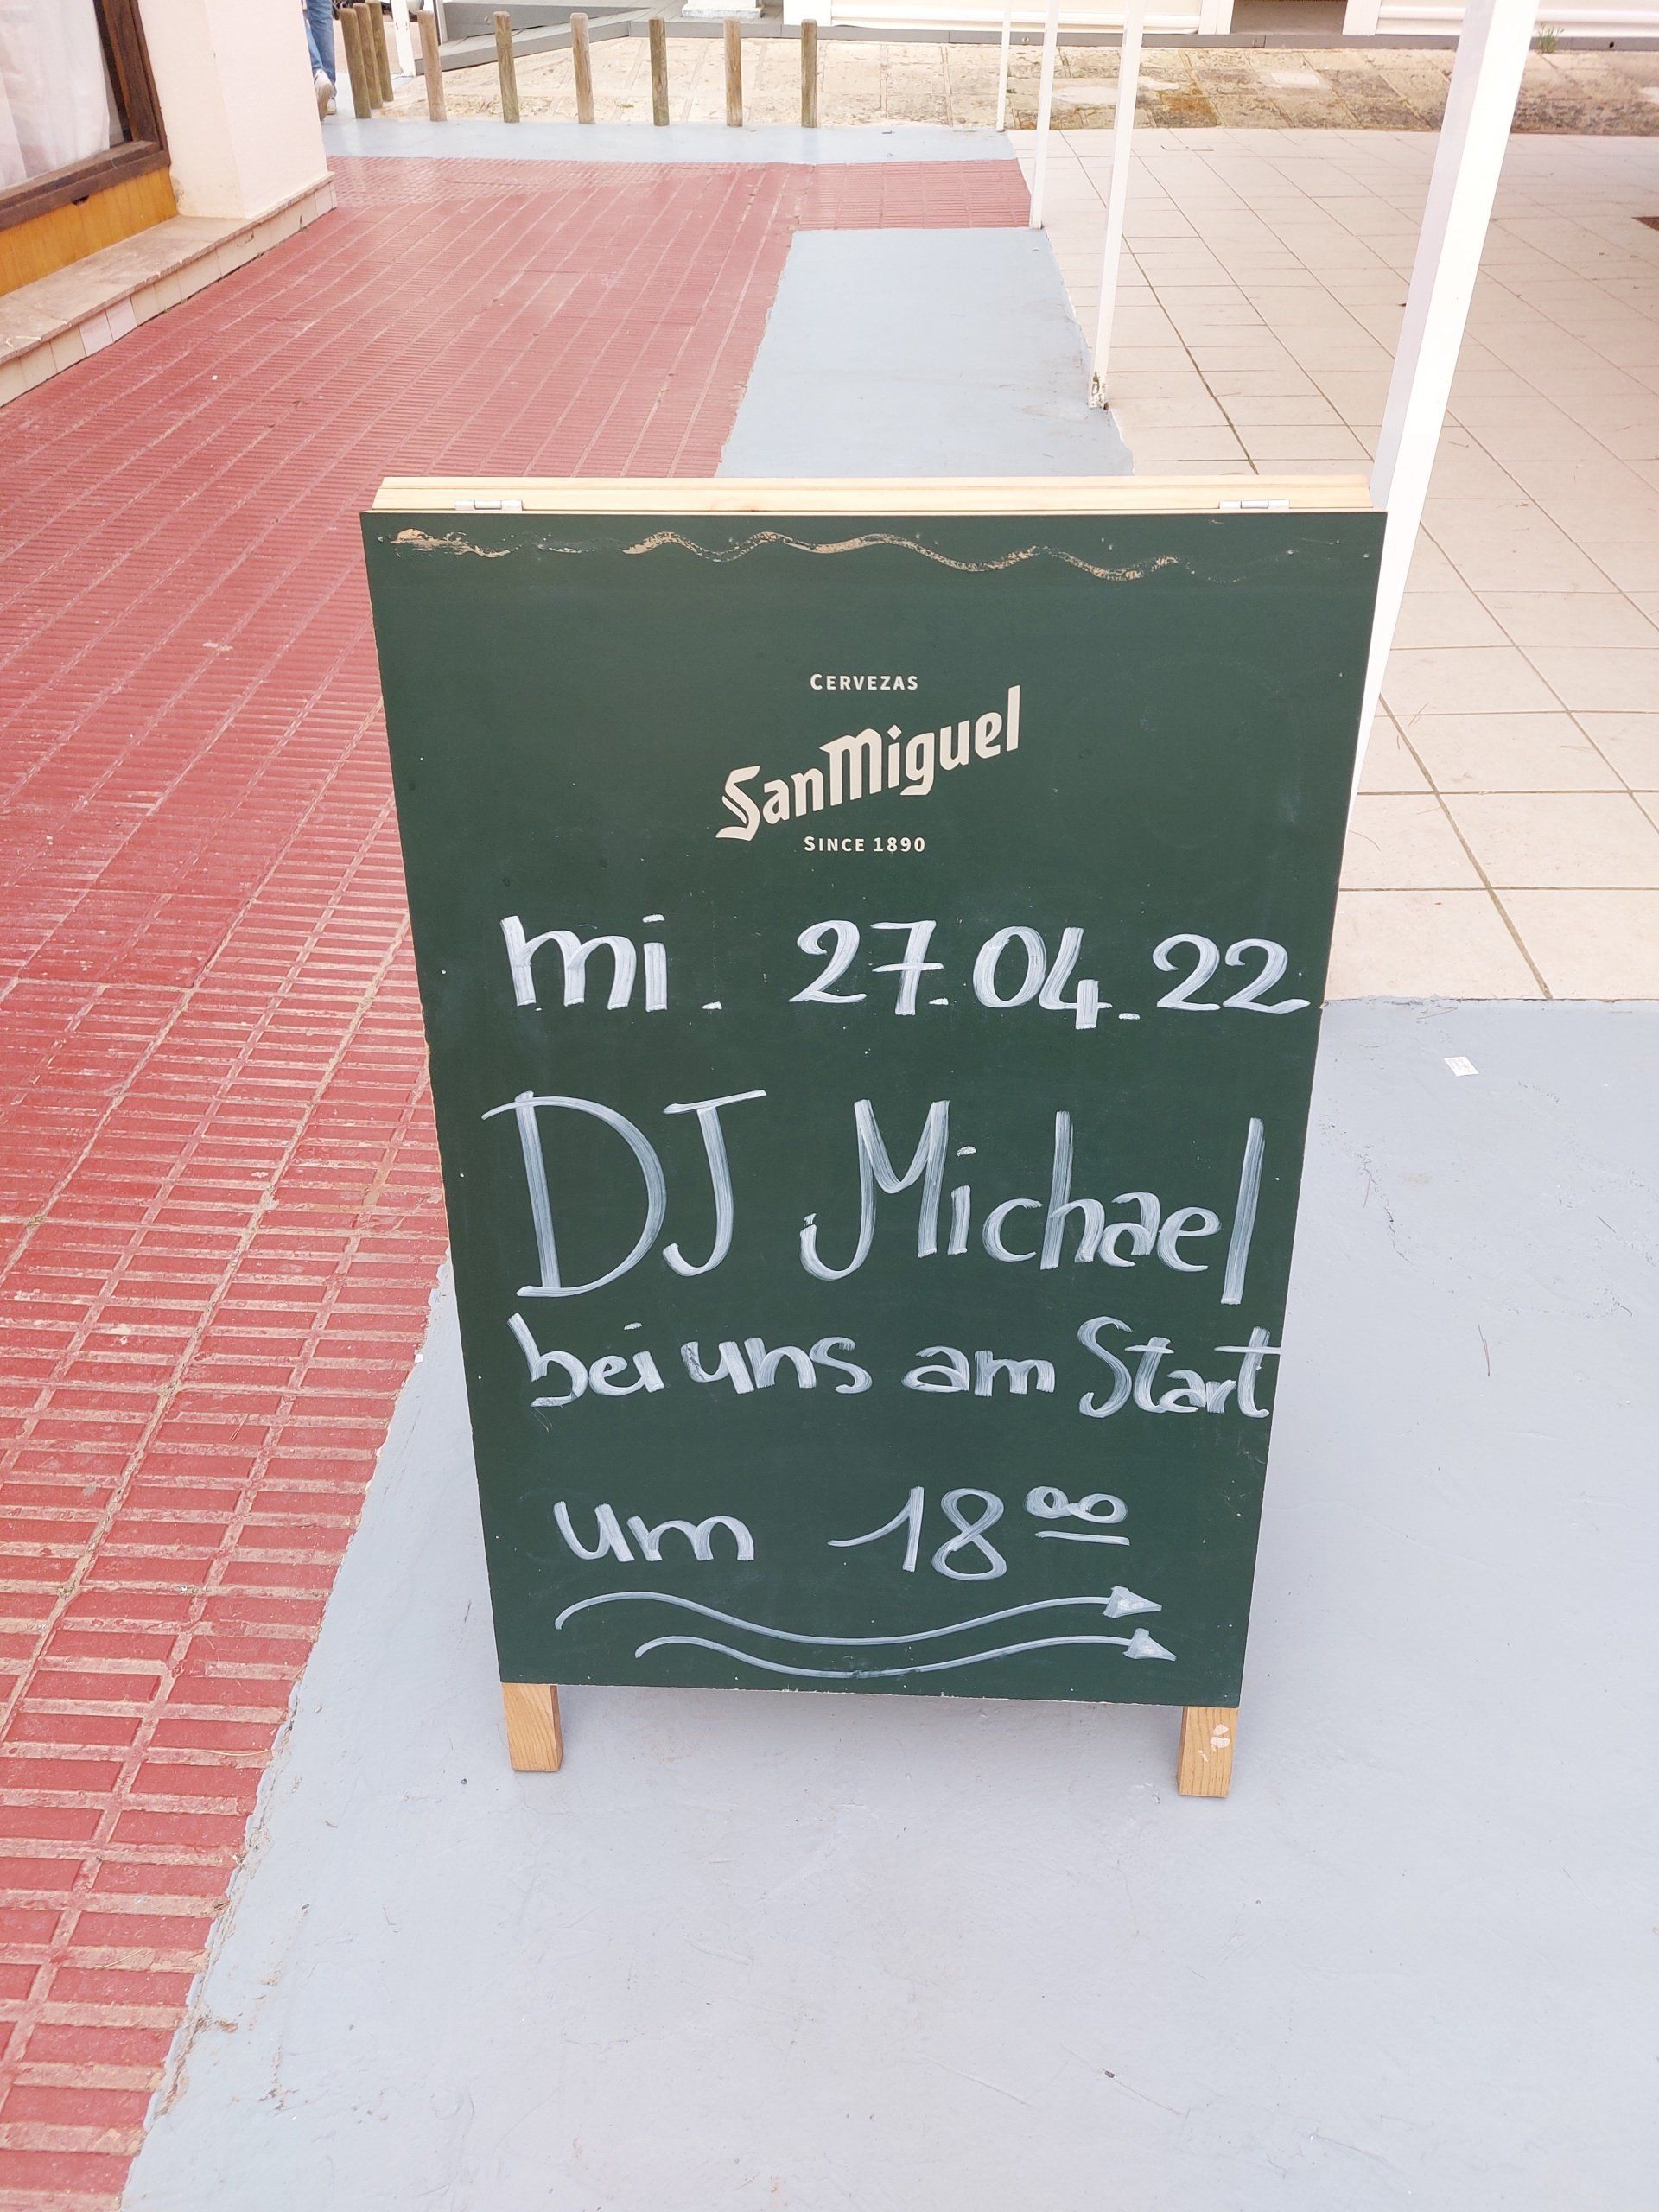 CERVEZAS
San Miguel
SINCE 1890
mi. 27.04.22
DJ Michael
bei uns am Start
um 18⁰⁰